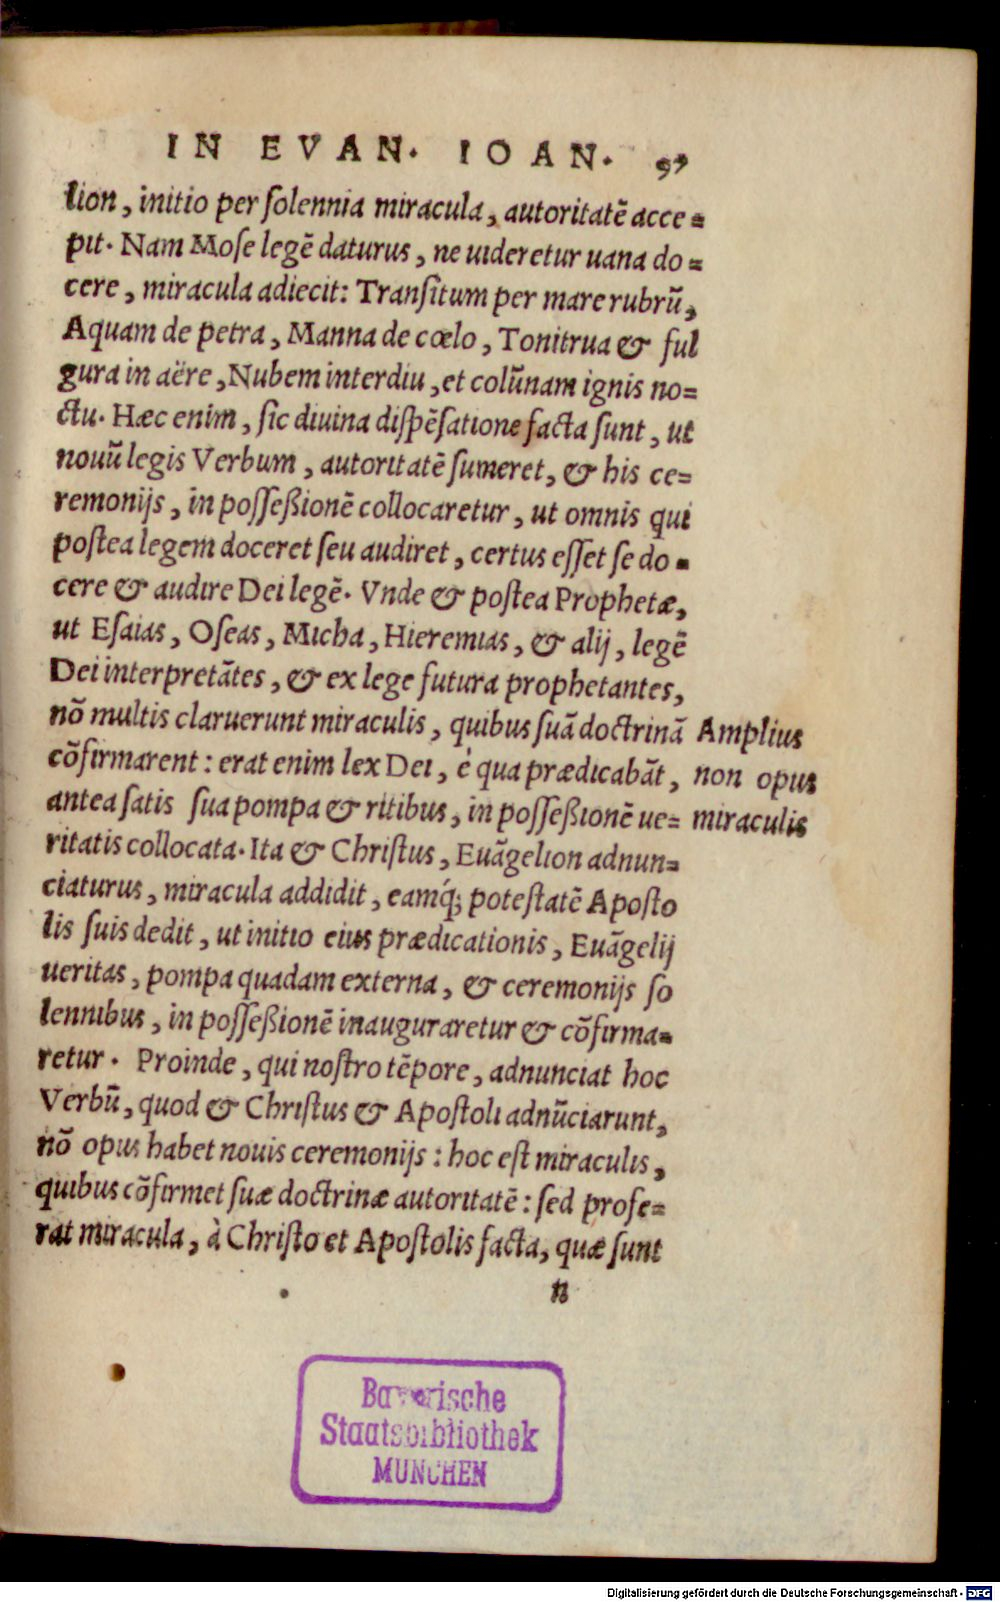 IN EVAN. IOAN. 97
lion, initio per ſolennia miracula, autoritatē acce=
pit. Nam Moſe legē daturus, ne uideretur uana do=
cere, miracula adiecit: Tranſitum per mare rubrū,
Aquam de petra, Manna de cœlo, Tonitrua & ful
gura in aëre, Nubem interdiu, et colūnam ignis no=
ctu. Hæc enim, ſic diuina diſpēſatione facta ſunt, ut
nouū legis Verbum, autoritatē ſumeret, & his ce=
remonijs, in poſſeßionē collocaretur, ut omnis qui
poſtea legem doceret ſeu audiret, certus eſſet ſe do=
cere & audire Dei legē. Vnde & poſtea Prophetæ,
ut Eſaias, Oſeas, Micha, Hieremias, & alij, legē
Dei interpretātes, & ex lege futura prophetantes,
nō multis claruerunt miraculis, quibus ſuā doctrinā
cōfirmarent: erat enim lex Dei, è qua prædicabāt,
antea ſatis ſua pompa & ritibus, in poſſeßionē ue=
ritatis collocata. Ita & Chriſtus, Euāgelion adnun=
ciaturus, miracula addidit, eamq́; poteſtatē Apoſto
lis ſuis dedit, ut initio eius prædicationis, Euāgelij
ueritas, pompa quadam externa, & ceremonijs ſo
lennibus, in poſſeßionē inauguraretur & cōfirma=
retur. Proinde, qui noſtro tēpore, adnunciat hoc
Verbū, quod & Chriſtus & Apoſtoli adnūciarunt,
nō opus habet nouis ceremonijs: hoc eſt miraculis,
quibus cōfirmet ſuæ doctrinæ autoritatē: ſed profe=
rat miracula, à Chriſto et Apoſtolis facta, quæ ſunt
n
Amplius
non opus
miraculis
Bayerische
Staatsbibliothek
MÜNCHEN
Digitalisierung gefördert durch die Deutsche Forschungsgemeinschaft - DFG